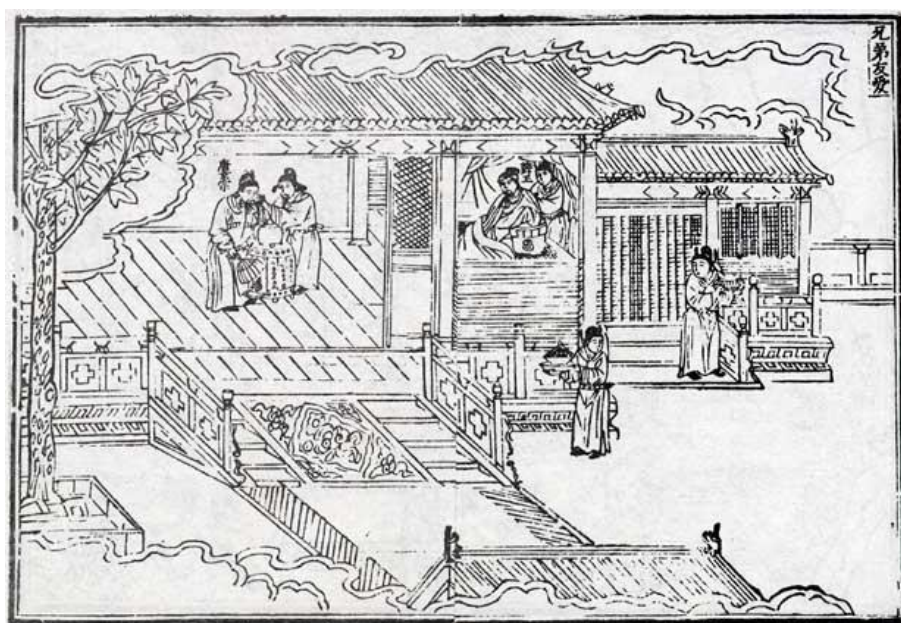 兄弟友愛